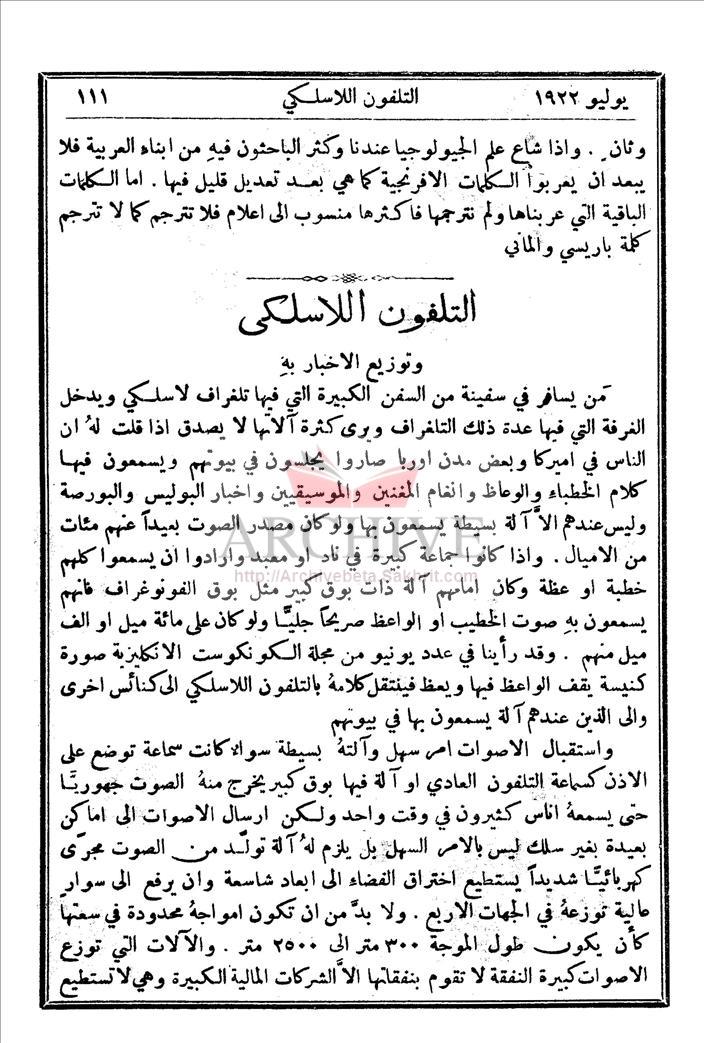 يوليو ١٩٢٢ التلفون اللاسلكي ١١١
وثانٍ . واذا شاع علم الجيولوجيا عندنا وكثر الباحثون فيهِ من ابناء العربية فلا
يبعد ان يعربوا الكلمات الافرنجية كما هي بعد تعديل قليل فيها . اما الكلمات
الباقية التي عربناها ولم نترجمها فاكثرها منسوب الى اعلام فلا تترجم كما لا تترجم
كلمة باريسي والماني
التلفون اللاسلكي
وتوزيع الاخبار بهِ
مَن يسافر في سفينة من السفن الكبيرة التي فيها تلغراف لاسلكي ويدخل
الغرفة التي فيها عدة ذلك التلغراف ويرى كثرة آلاتها لا يصدق اذا قلت لهُ ان
الناس في اميركا وبعض مدن اوربا صاروا يجلسون في بيوتهم ويسمعون فيها
كلام الخطباء والوعاظ وانغام المغنين والموسيقيين واخبار البوليس والبورصة
وليس عندهم الاَّ آلة بسيطة يسمعون بها ولو كان مصدر الصوت بعيداً عنهم مئات
من الاميال . واذا كانوا جماعة كبيرة في نادٍ او معبد وارادوا ان يسمعوا كلهم
خطبة او عظة وكان امامهم آلة ذات بوق كبير مثل بوق الفونوغراف فانهم
يسمعون بهِ صوت الخطيب او الواعظ صريحاً جليًّا ولو كان على مائة ميل او الف
ميل منهم . وقد رأينا في عدد يونيو من مجلة الكونكوست الانكليزية صورة
كنيسة يقف الواعظ فيها ويعظ فينتقل كلامهُ بالتلفون اللاسلكي الى كنائس اخرى
والى الذين عندهم آلة يسمعون بها في بيوتهم
واستقبال الاصوات امر سهل وآلتهُ بسيطة سواء كانت سماعة توضع على
الاذن كسماعة التلفون العادي او آلة فيها بوق كبير يخرج منهُ الصوت جهوريًّا
حتى يسمعهُ اناس كثيرون في وقت واحد ولكن ارسال الاصوات الى اماكن
بعيدة بغير سلك ليس بالامر السهل بل يلزم لهُ آلة تولّد من الصوت مجرًى
كهربائيًّا شديداً يستطيع اختراق الفضاء الى ابعاد شاسعة وان يرفع الى سوارٍ
عالية توزعهُ في الجهات الاربع . ولا بدَّ من ان تكون امواجهُ محدودة في سعتها
كأن يكون طول الموجة ٣٠٠ متر الى ٢٥٠٠ متر . والآلات التي توزع
الاصوات كبيرة النفقة لا تقوم بنفقاتها الاَّ الشركات المالية الكبيرة وهي لا تستطيع
ARCHIVE
http://Archivebeta.Sakhrit.com